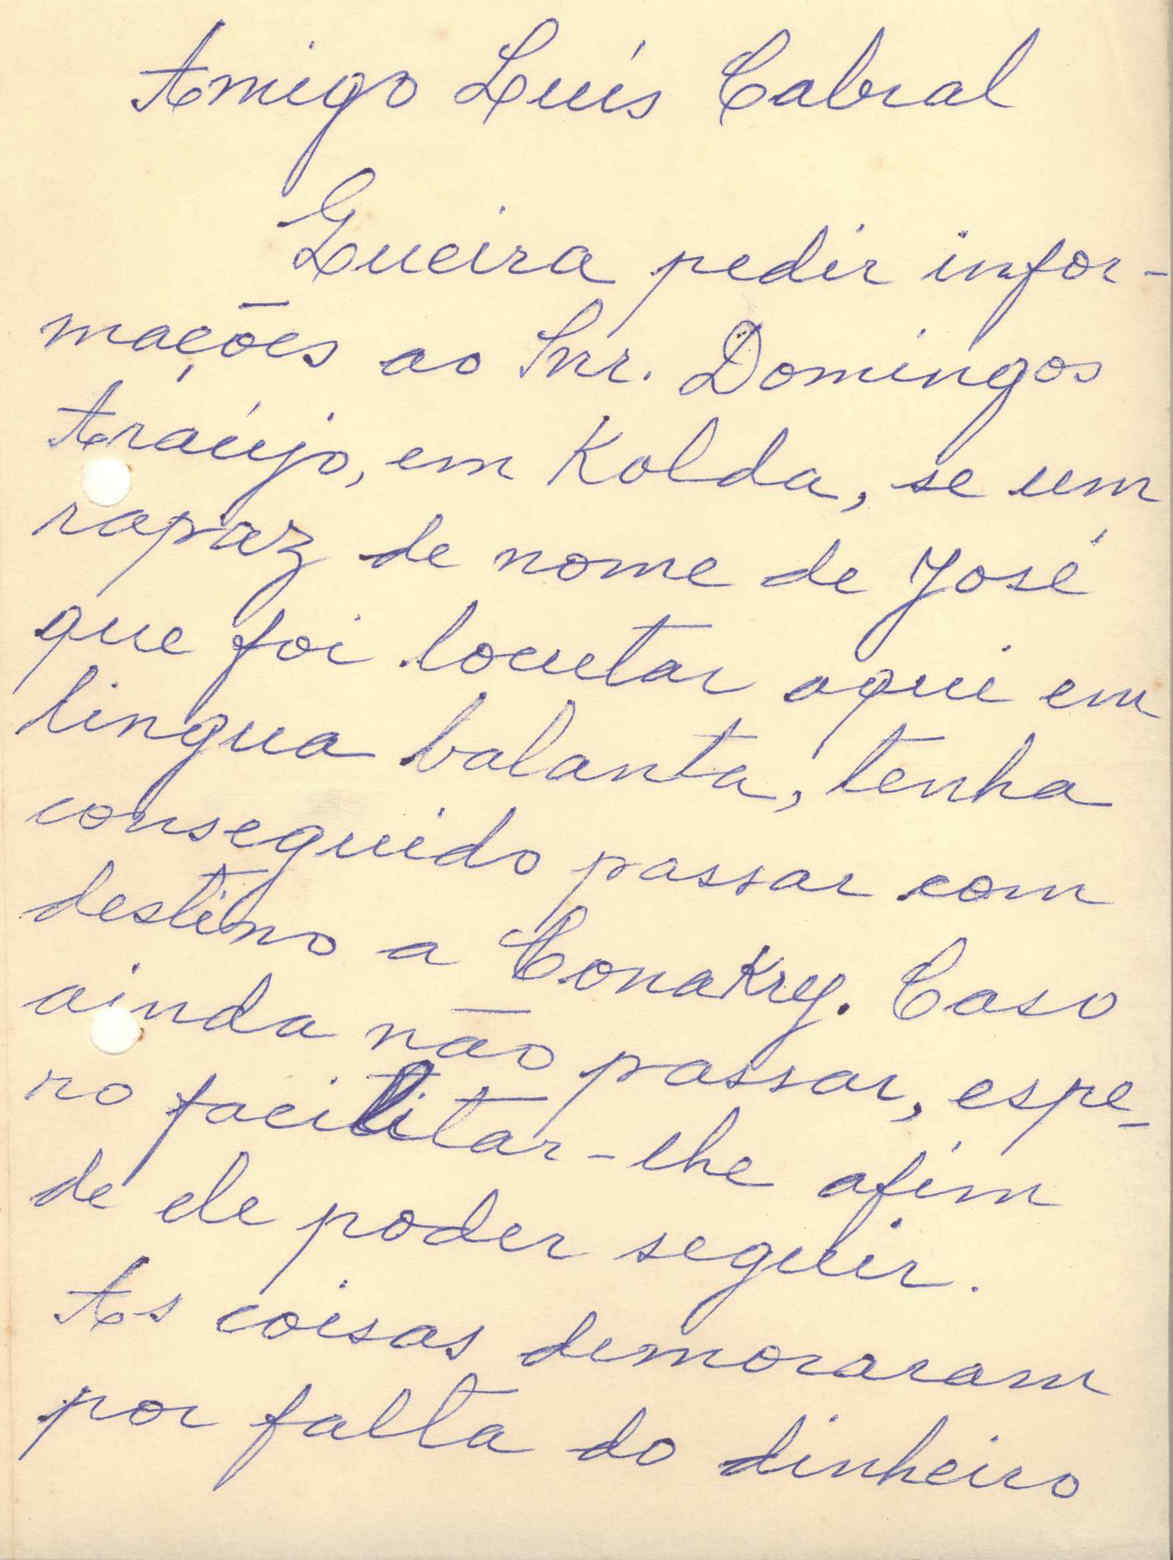 Amigo Luís Cabral
Queira pedir infor-
mações ao Snr. Domingos
Araújo, em Kolda, se um
rapaz de nome de José
que foi locutar aqui em
lingua balanta, tenha
conseguido passar com
destino a Conakry. Caso
ainda não passar, espe-
ro facilitar-lhe afim
de ele poder seguir.
As coisas demoraram
por falta do dinheiro